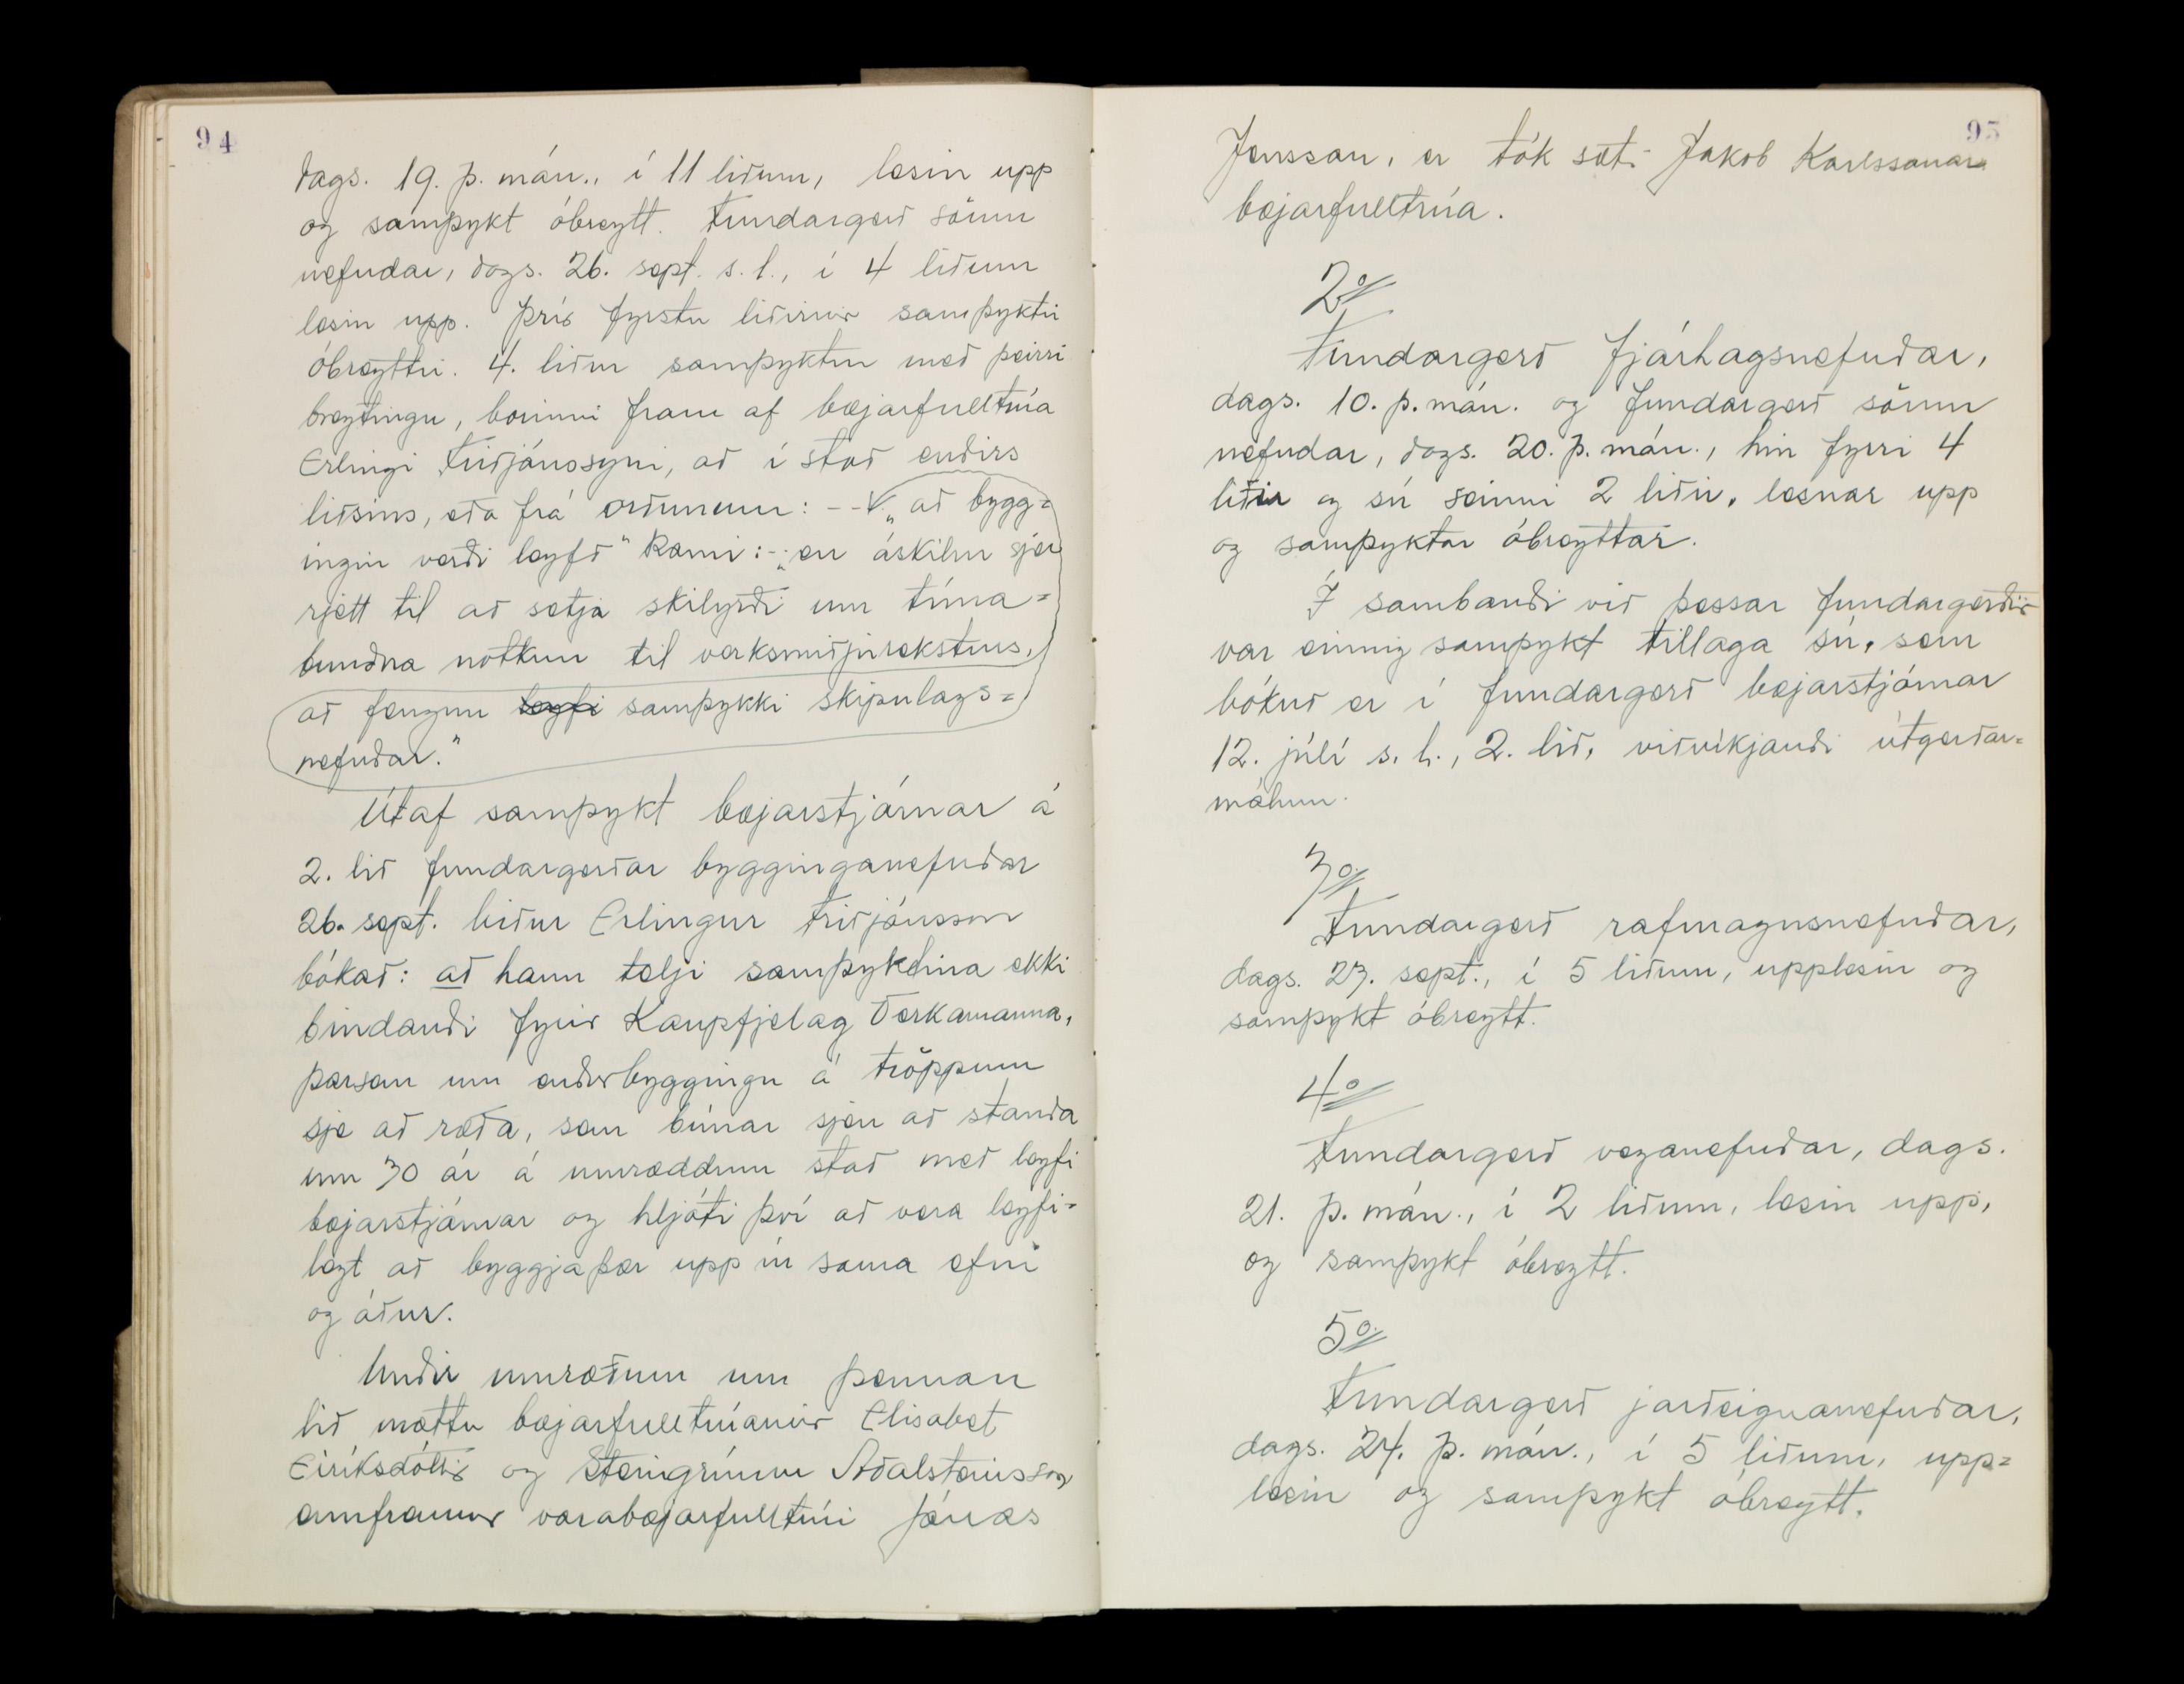 94
dags. 19. þ. mán., í 11 liðum, lesin upp
og samþykt óbreytt. Fundargerð sömu
nefndar, dags. 26. sept. s.l., í 4 liðum
lesin upp. Þrír fyrstu liðirnir samþyktir
óbreyttir. 4. liður samþyktur með þeirri
breytingu, borinni fram af bæjarfulltrúa
Erlingi Friðjónssyni, að í stað endirs
liðsins, eða frá orðunum: -- „að bygg=
ingin verði leyfð" komi:- „en áskilur sjer
rjett til að setja skilyrði um tíma=
bundna notkun til verksmiðjureksturs,
að fengnu leyfi samþykki skipulags=
nefndar."
Útaf samþykt bæjarstjórnar á
2. lið fundargerðar bygginganefndar
26. sept. biður Erlingur Friðjónsson
bókað: að hann telji samþyktina ekki
bindandi fyrir Kaupfjelag Verkamanna,
þarsem um endurbyggingu á tröppum
sje að ræða, sem búnar sjeu að standa
um 30 ár á umræddum stað með leyfi
bæjarstjórnar og hljóti því að vera leyfi=
legt að byggja þær upp úr sama efni
og áður.
Undir umræðum um þennan
lið mættu bæjarfulltrúarnir Elísabet
Eiríksdóttir og Steingrímur Aðalsteinsson
ennfremur varabæjarfulltrúi Jónas
95
Jensson, er tók sæti Jakob Karlssonar
bæjarfulltrúa.
2o
Fundargerð fjárhagsnefndar,
dags. 10. þ. mán. og fundargerð sömu
nefndar, dags. 20. þ. mán., hin fyrri 4
liðir og sú seinni 2 liðir, lesnar upp
og samþyktar óbreyttar.
Í sambandi við þessar fundargerðir
var einnig samþykt tillaga sú, sem
bókuð er í fundargerð bæjarstjórnar
12. júlí s. l., 2. lið, viðvíkjandi útgerðar=
málum.
3o
Fundargerð rafmagnsnefndar,
dags. 27. sept., í 5 liðum, upplesin og
samþykt óbreytt.
4o
Fundargerð veganefndar, dags.
21. þ. mán., í 2 liðum, lesin upp,
og samþykt óbreytt.
5o
Fundargerð jarðeignanefndar,
dags. 24. þ. mán., í 5 liðum, upp=
lesin og samþykt óbreytt.